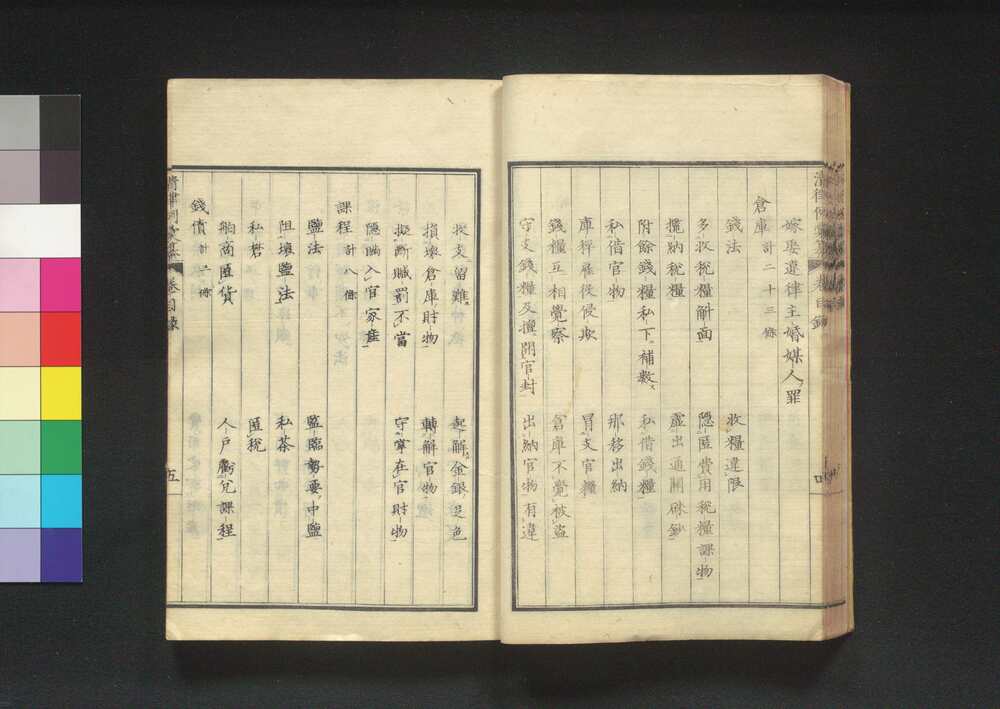 嫁娶違律主婚媒人罪
倉庫計二十三條
錢法
收糧違限
多收稅糧斛面
隱匿費用稅糧課物
攬納稅糧
虛出通關硃鈔
附餘錢糧私下補數
私借錢糧
私借官物
那移出納
庫秤雇役侵欺
冒支官糧
錢糧互相覺察
倉庫不覺被盜
守支錢糧及擅開官封
出納官物有違
收支留難
起解金銀足色
損壞倉庫財物
轉解官物
擬斷贓罰不當
守掌在官財物
隱瞞入官家產
課程計八條
鹽法
監臨勢要中鹽
阻壞鹽法
私茶
私礬
匿稅
舶商匿貨
人戶虧兌課程
錢債計二條
五